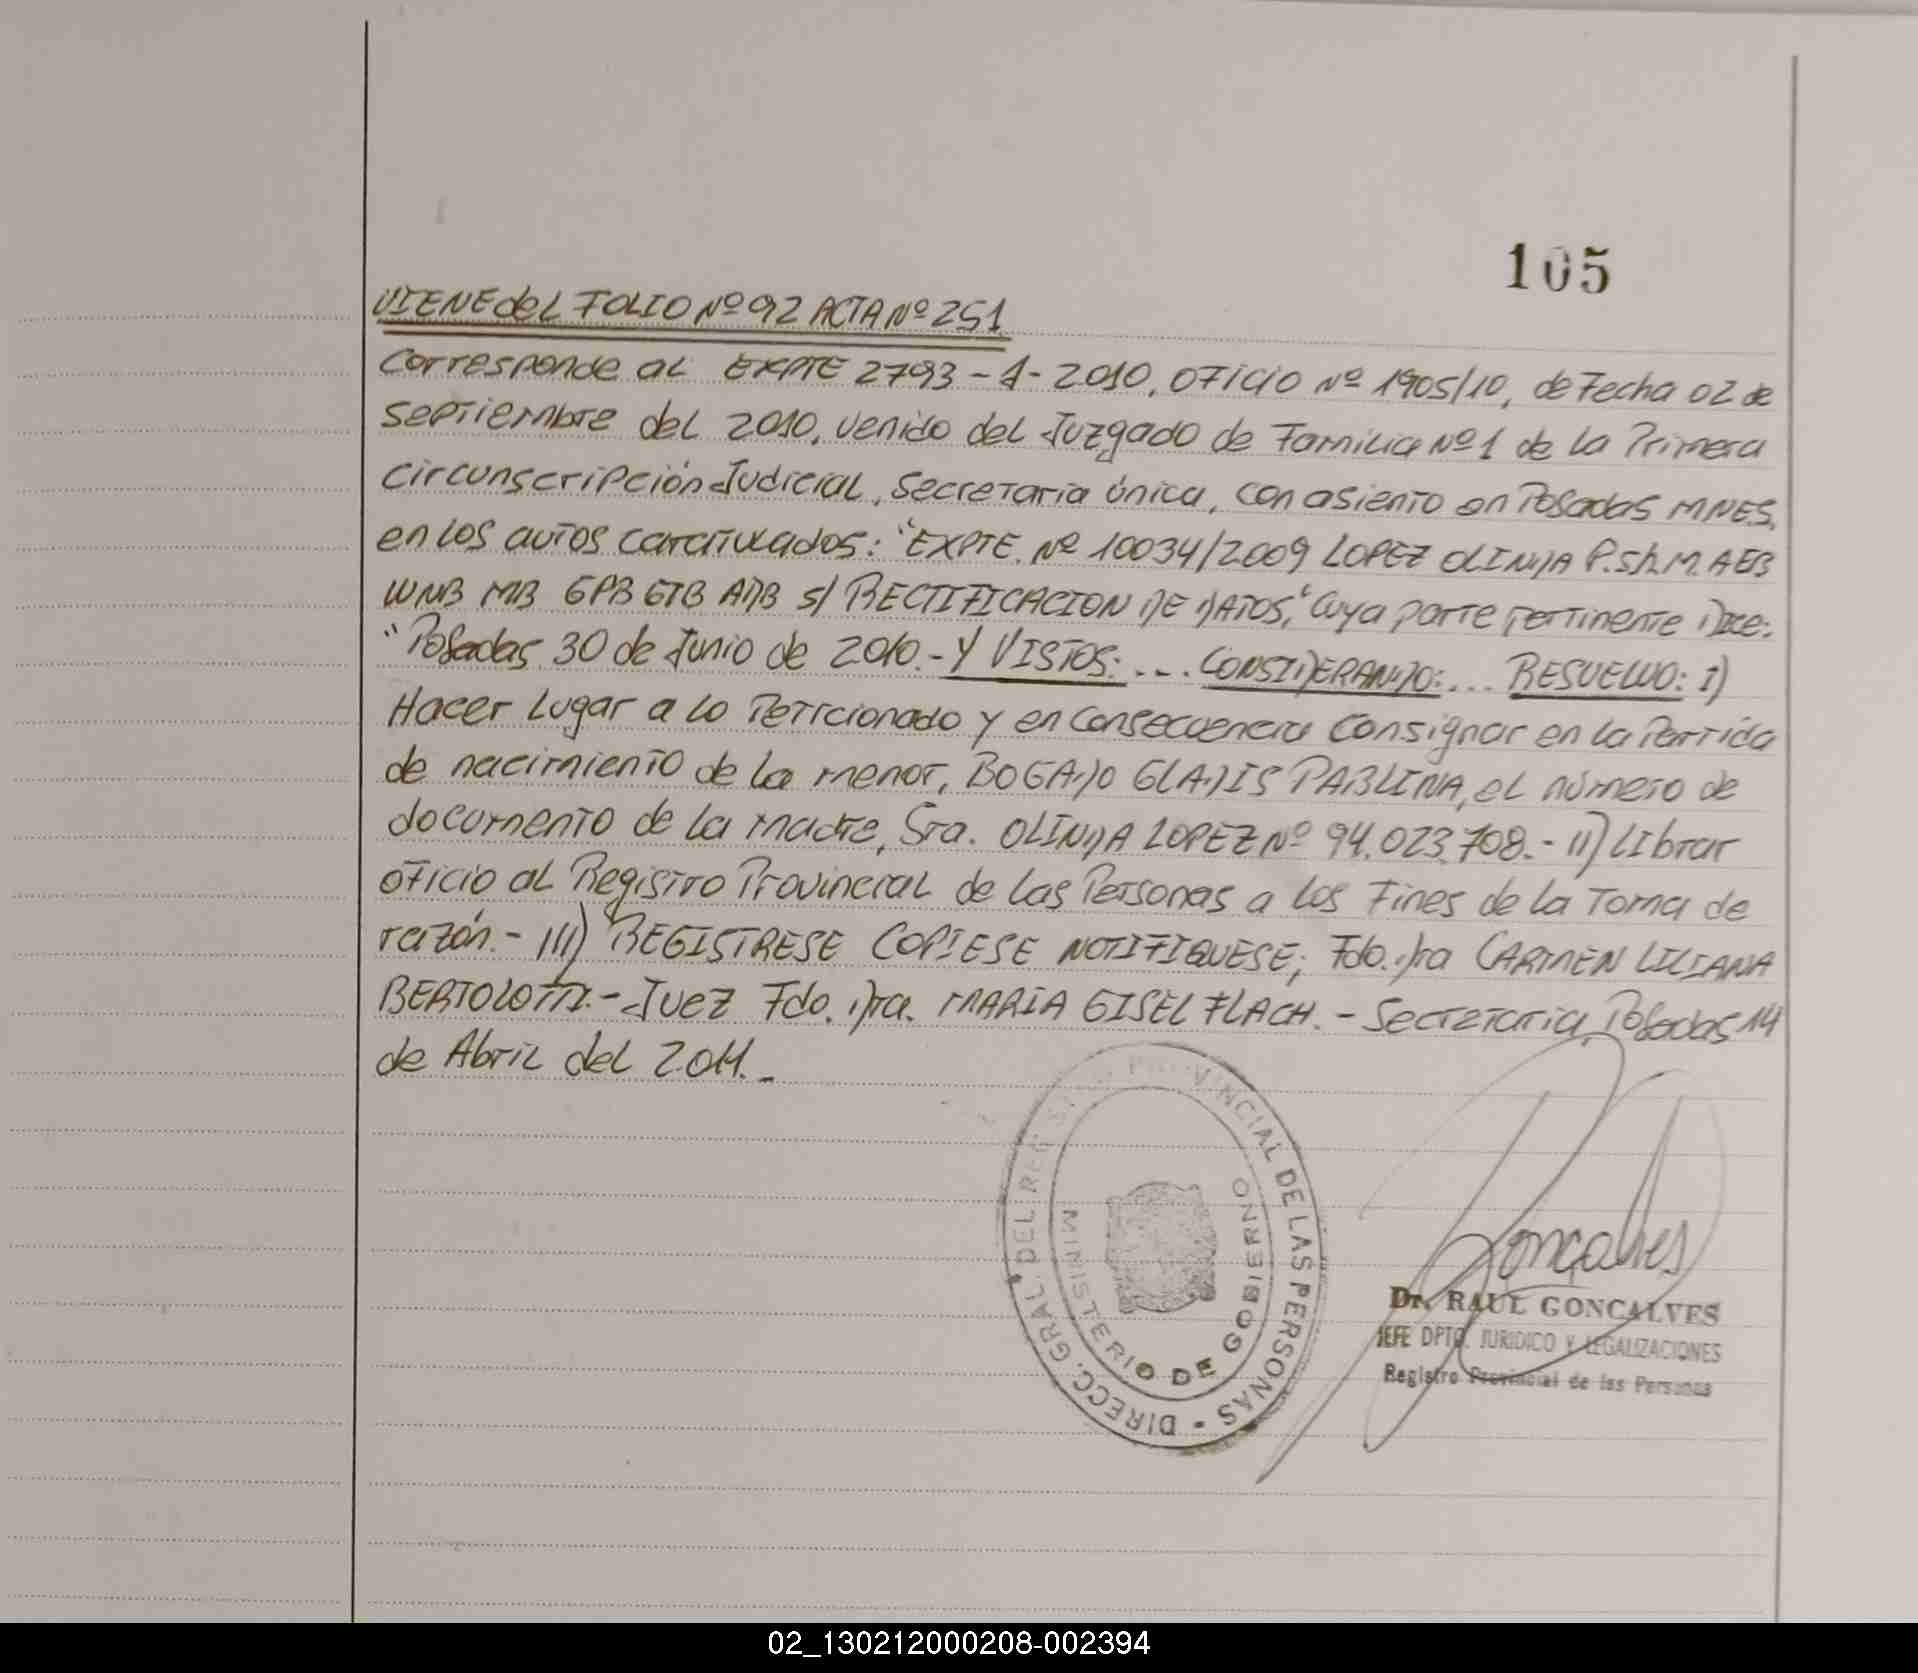 105
VIENE del FOLIO Nº 92 ACTA Nº 251.
Corresponde al EXPTE 2793-A-2010, oficio Nº 1905/10, de Fecha 02 de
septiembre del 2010, venido del Juzgado de Familia Nº 1 de la Primera
circunscripción Judicial, Secretaria única, con asiento en Posadas MNES,
en los autos caratulados: "EXPTE. Nº 10034/2009 LOPEZ OLINDA P.sh.M. AEB
WNB MB GPB GTB ADB s/ RECTIFICACION DE DATOS," Cuya parte pertinente Dice:
"Posadas 30 de Junio de 2010.- Y VISTOS:... CONSIDERANDO:... RESUELVO: I)
Hacer Lugar a lo Peticionado y en Consecuencia Consignar en la Partida
de nacimiento de la menor, BOGADO GLADIS PABLINA, el número de
documento de la madre, Sra. OLINDA LOPEZ Nº 94.023.708.- II) Librar
oficio al Registro Provincial de las Personas a los Fines de la Toma de
razón.- III) REGISTRESE COPIESE NOTIFIQUESE; Fdo. Dra CARMEN LILIANA
BERTOLOTTI.- Juez Fdo. Dra. MARIA GISEL FLACH.- Secretaria, Posadas 14
de Abril del 2011.-
DIRECC. GRAL. DEL REGISTRO PROVINCIAL DE LAS PERSONAS -
MINISTERIO DE GOBIERNO
Gonçalves
Dr. RAUL GONCALVES
JEFE DPTO. JURIDICO Y LEGALIZACIONES
Registro Provincial de las Personas
02_130212000208-002394